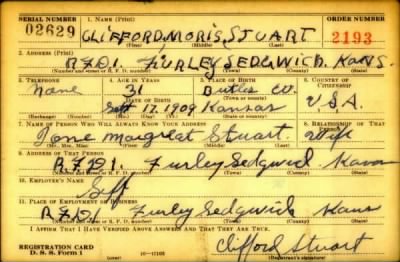 SERIAL NUMBER 1. NAME (Print) ORDER NUMBER
02629 CLIFFORD MORIS STUART 2193
(First) (Middle) (Last)
2. ADDRESS (Print)
R.F.D.1. FURLEY SEDGWICK KANS.
(Number and street or R. F. D. number) (Town) (County) (State)
3. TELEPHONE 4. AGE IN YEARS 5. PLACE OF BIRTH 6. COUNTRY OF CITIZENSHIP
None 31 Butler Co.
DATE OF BIRTH
Sept 17. 1909 Kansas U.S.A.
(Exchange) (Number) (Mo.) (Day) (Yr.) (State or country)
7. NAME OF PERSON WHO WILL ALWAYS KNOW YOUR ADDRESS 8. RELATIONSHIP OF THAT PERSON
Margreat Stuart. Wife
(Mr., Mrs., Miss) (First) (Middle) (Last)
9. ADDRESS OF THAT PERSON
R.F.D1. Furley Sedgwick
(Number and street or R. F. D. number) (Town) (County) (State)
10. EMPLOYER'S NAME
Self
11. PLACE OF EMPLOYMENT OR BUSINESS
R.F.D1 Furley Sedgwick Kans
(Number and street or R. F. D. number) (Town) (County) (State)
I AFFIRM THAT I HAVE VERIFIED ABOVE ANSWERS AND THAT THEY ARE TRUE.
REGISTRATION CARD
D. S. S. Form 1 Clifford Stuart
(Registrant's signature)